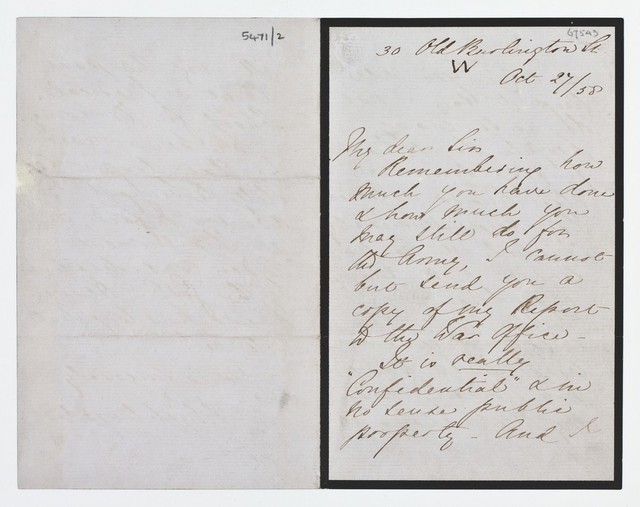 5471/2
67593
30 Old Burlington St.
W
Oct 27/58
My dear Sir
Remembering how
much you have done
& how much you
may still do for
the Army, I cannot
but send you a
copy of my Report
to the War Office -
It is really
"Confidential" & in
no sense public
property - And I